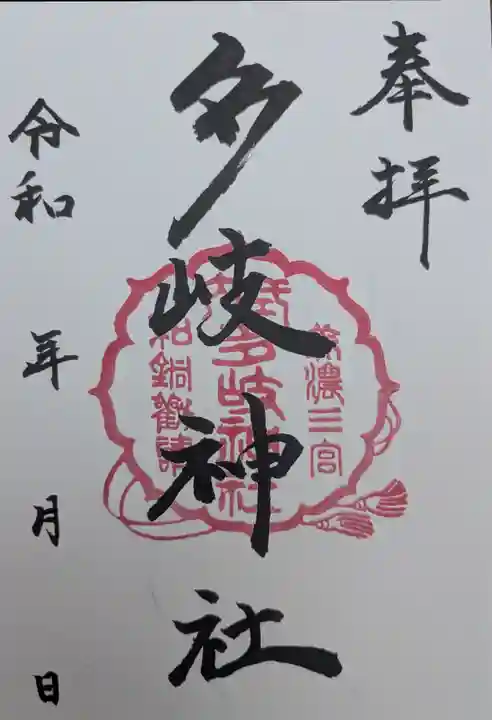 奉拝
美濃三宮
式内
多岐神社
和銅勧請
多岐神社
令和 年 月 日